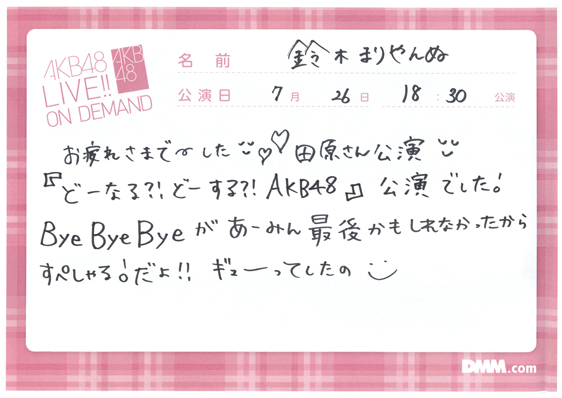 AKB48
LIVE!!
ON DEMAND
AKB
48
名前 鈴木まりやんぬ
公演日 7月 26日 18:30 公演
お疲れさまでーした 田原さん公演
『どーなる?!どーする?!AKB48』公演でした!
Bye Bye Byeがあーみん最後かもしれなかったから
すぺしゃる!だよ!! ギューってしたの
DMM.com